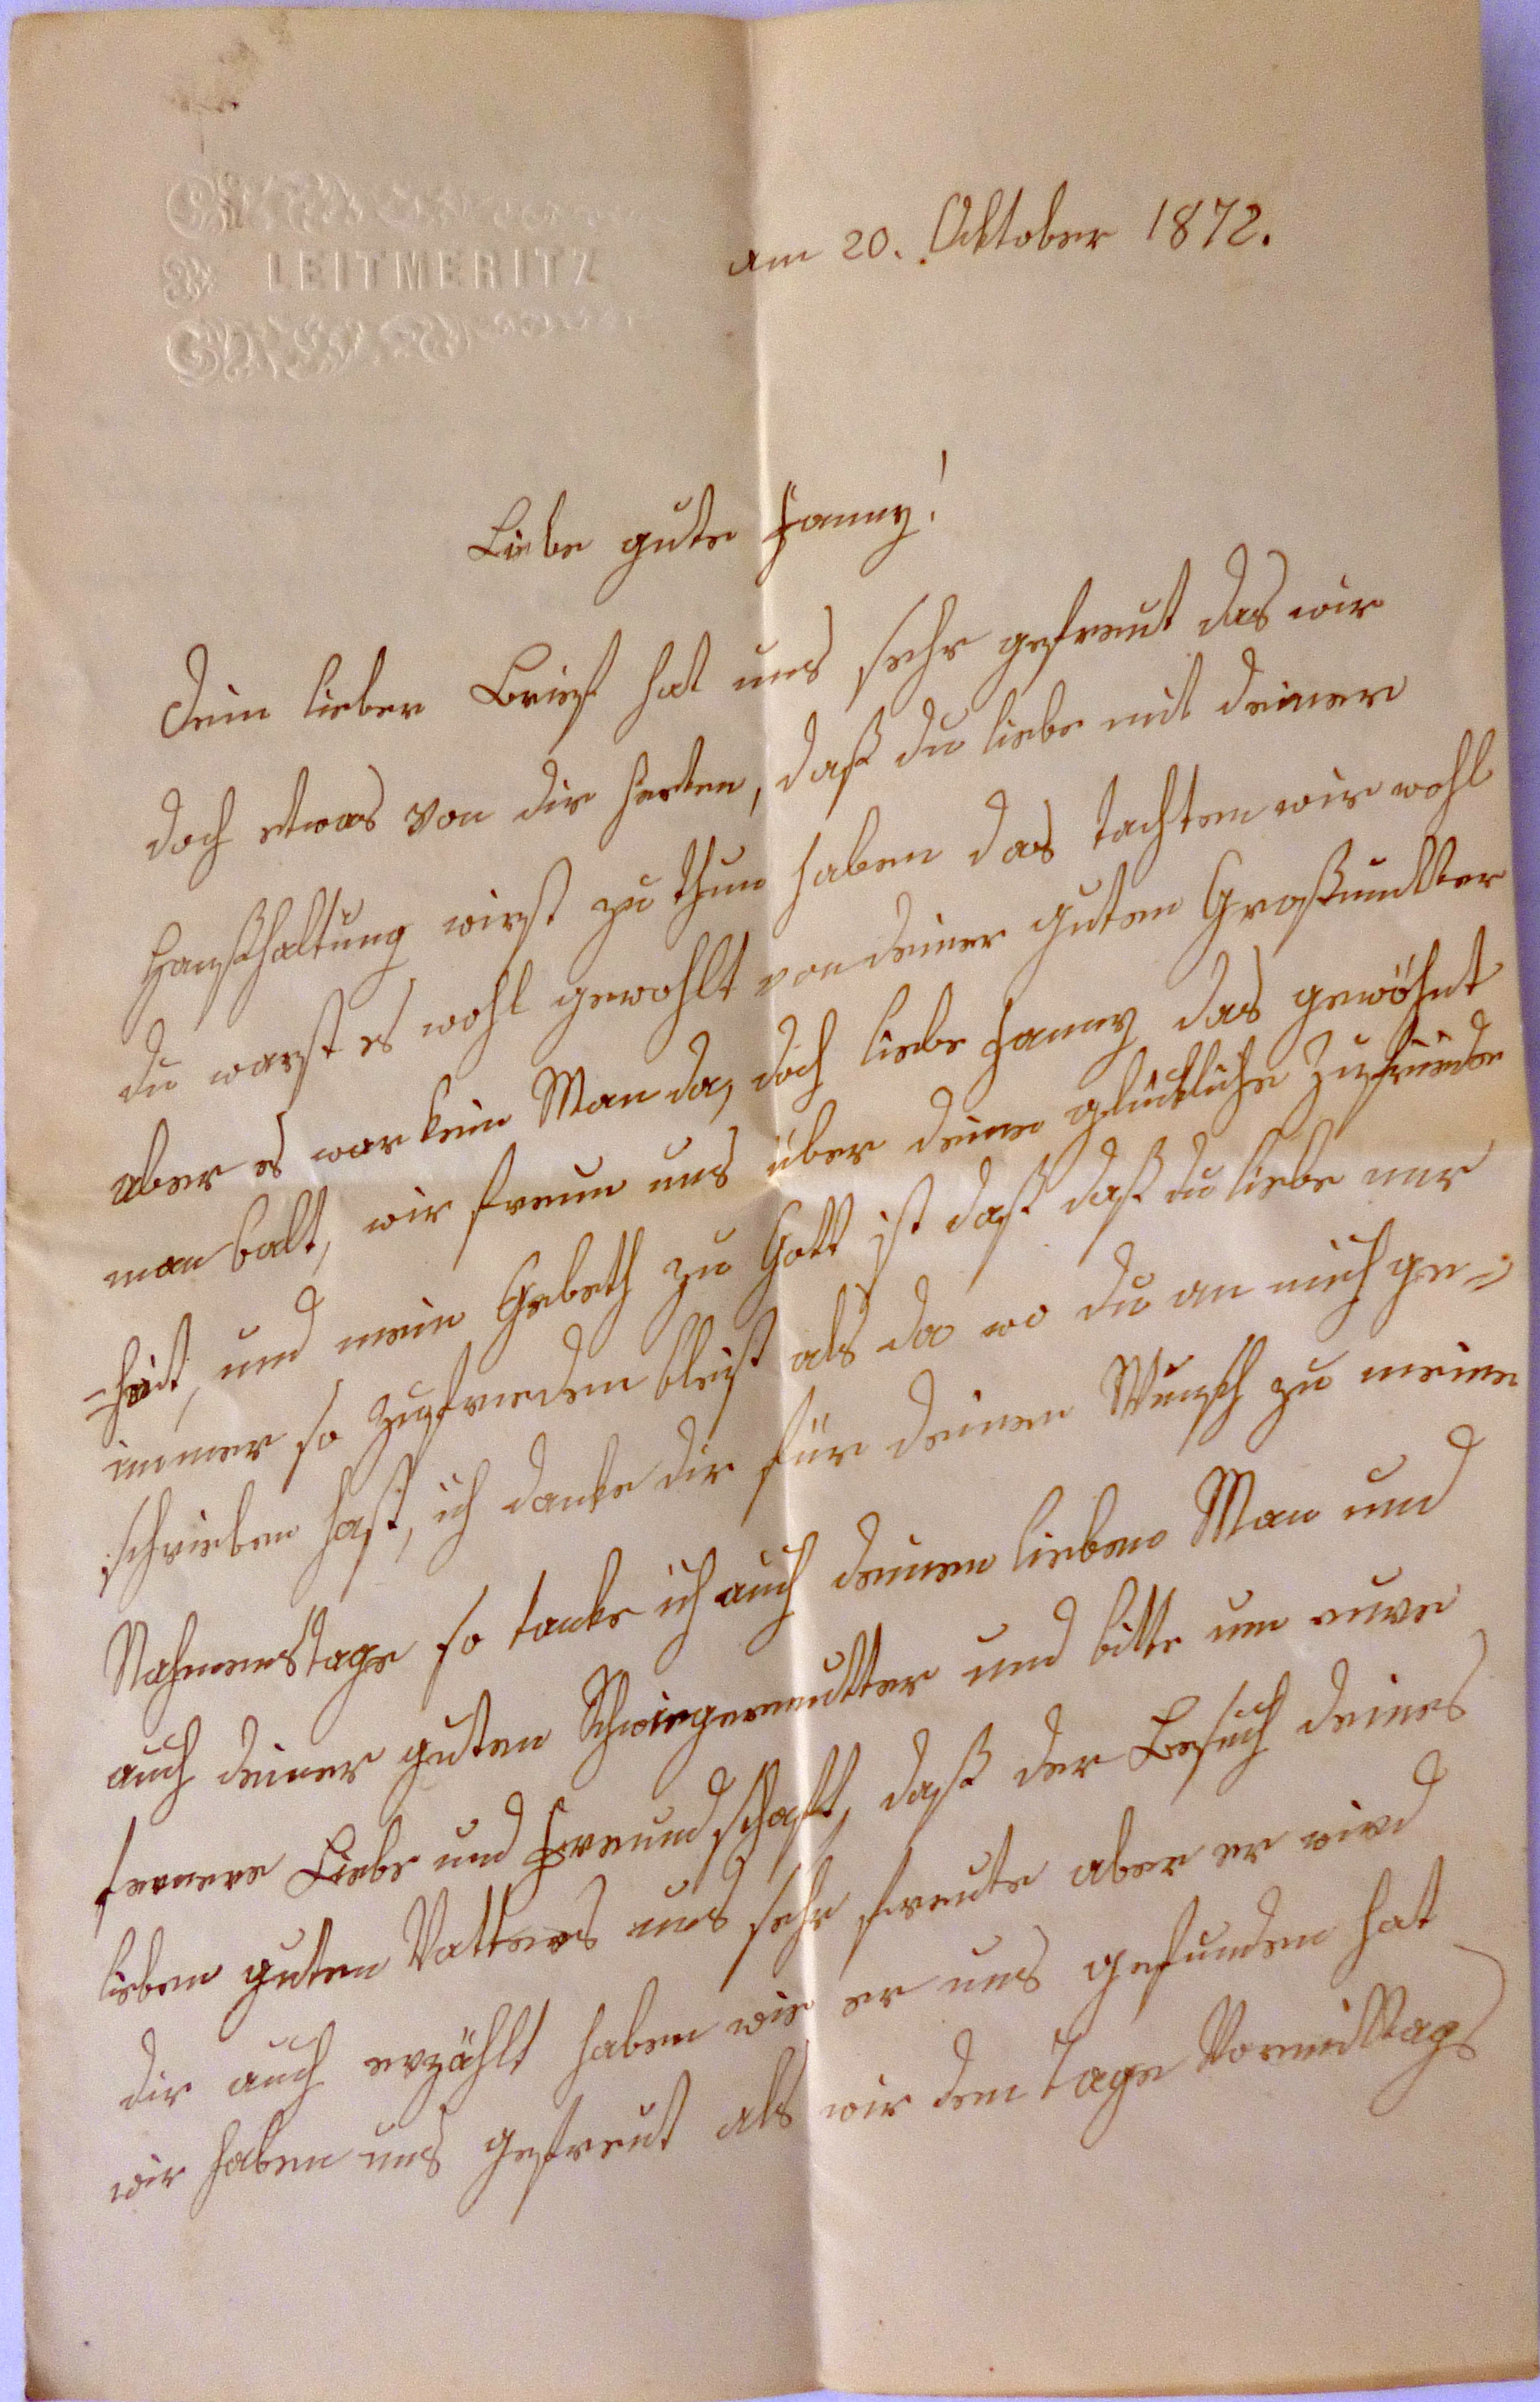 LEITMERITZ
am 20. Oktober 1872.
Liebe gute Fanny!
Dein lieber Brief hat uns sehr gefreut das wir
doch etwas von dir herten, daß du liebe mit deiner
Haußhaltung wirst zu thun haben das tachten wir wohl
du warst es wohl gewohlt von deiner guten Großmutter
aber es war kein Man da, doch liebe Fanny das gewöhnt
man balt, wir freun uns über deine glückliche Zufriede
-heit, und mein Gebeth zu Gott ist daß daß du liebe nur
immer so zufrieden bleist als da wo du an mich ge-
schrieben hast, ich danke dir für deinen Wunsch zu meine
Nahmenstage so tanke ich auch deinen lieben Man und
auch deiner guten Schwiegermutter und bitte um euere
fernere Liebe und Freundschaft, daß der Besuch deines
lieben guten Vatters uns sehr freute aber er wird
dir auch erzählt haben wie er uns gefunden hat
wir haben uns gefreut als wir den Tage Vormittags